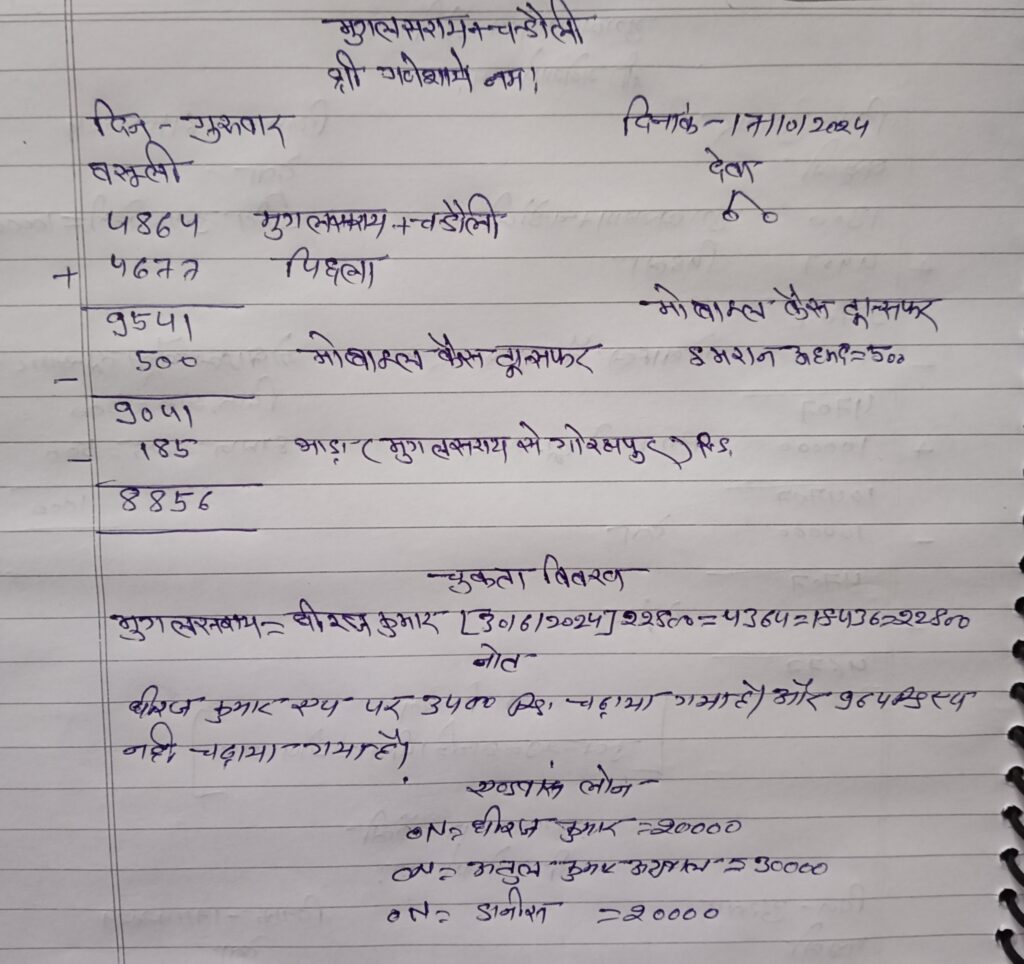 मुगलसराय + चन्डौली
श्री गणेशाये नम।
दिन - गुरुवार दिनांक - 17/10/2024
वसूली देवा
4864 मुगलसराय + चडौली
+ 4677 पिछला
9541 मोबाइल कैस ट्रान्सफर
- 500 मोबाइल कैस ट्रान्सफर इमरान अहमद = 500
9041
- 185 भाड़ा - (मुगलसराय से गोरखपुर)
8856
चुकता विवरण
मुगलसराय = धीरज कुमार [30/6/2024] 22800 = 4364 = 18436 = 22800
नोट
धीरज कुमार एप पर 3400 रु. चढ़ाया गया है। और 964 रु एप
नही चढ़ाया गया है।
लोन -
ON = धीरज कुमार = 20000
ON = अतुल कुमार = 30000
ON = = 20000